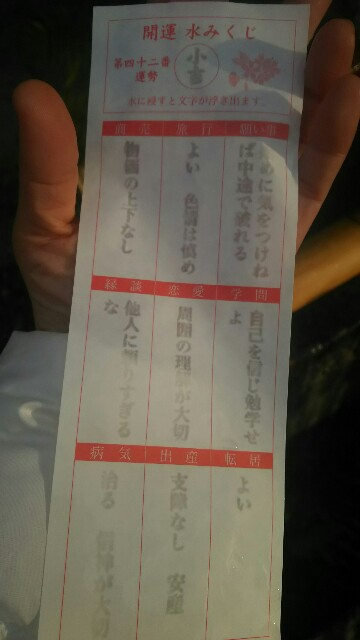 開運 水みくじ
第四十二番
運勢
小吉
水に浸すと文字が浮き出ます。
願い事
に気をつけね
ば中途で破れる
旅行
よい 色情は慎め
商売
物価の上下なし
学問
自己を信じ勉学せ
よ
恋愛
周囲の理解が大切
縁談
他人に頼りすぎる
な
転居
よい
出産
支障なし 安産
病気
治る 信神が大切